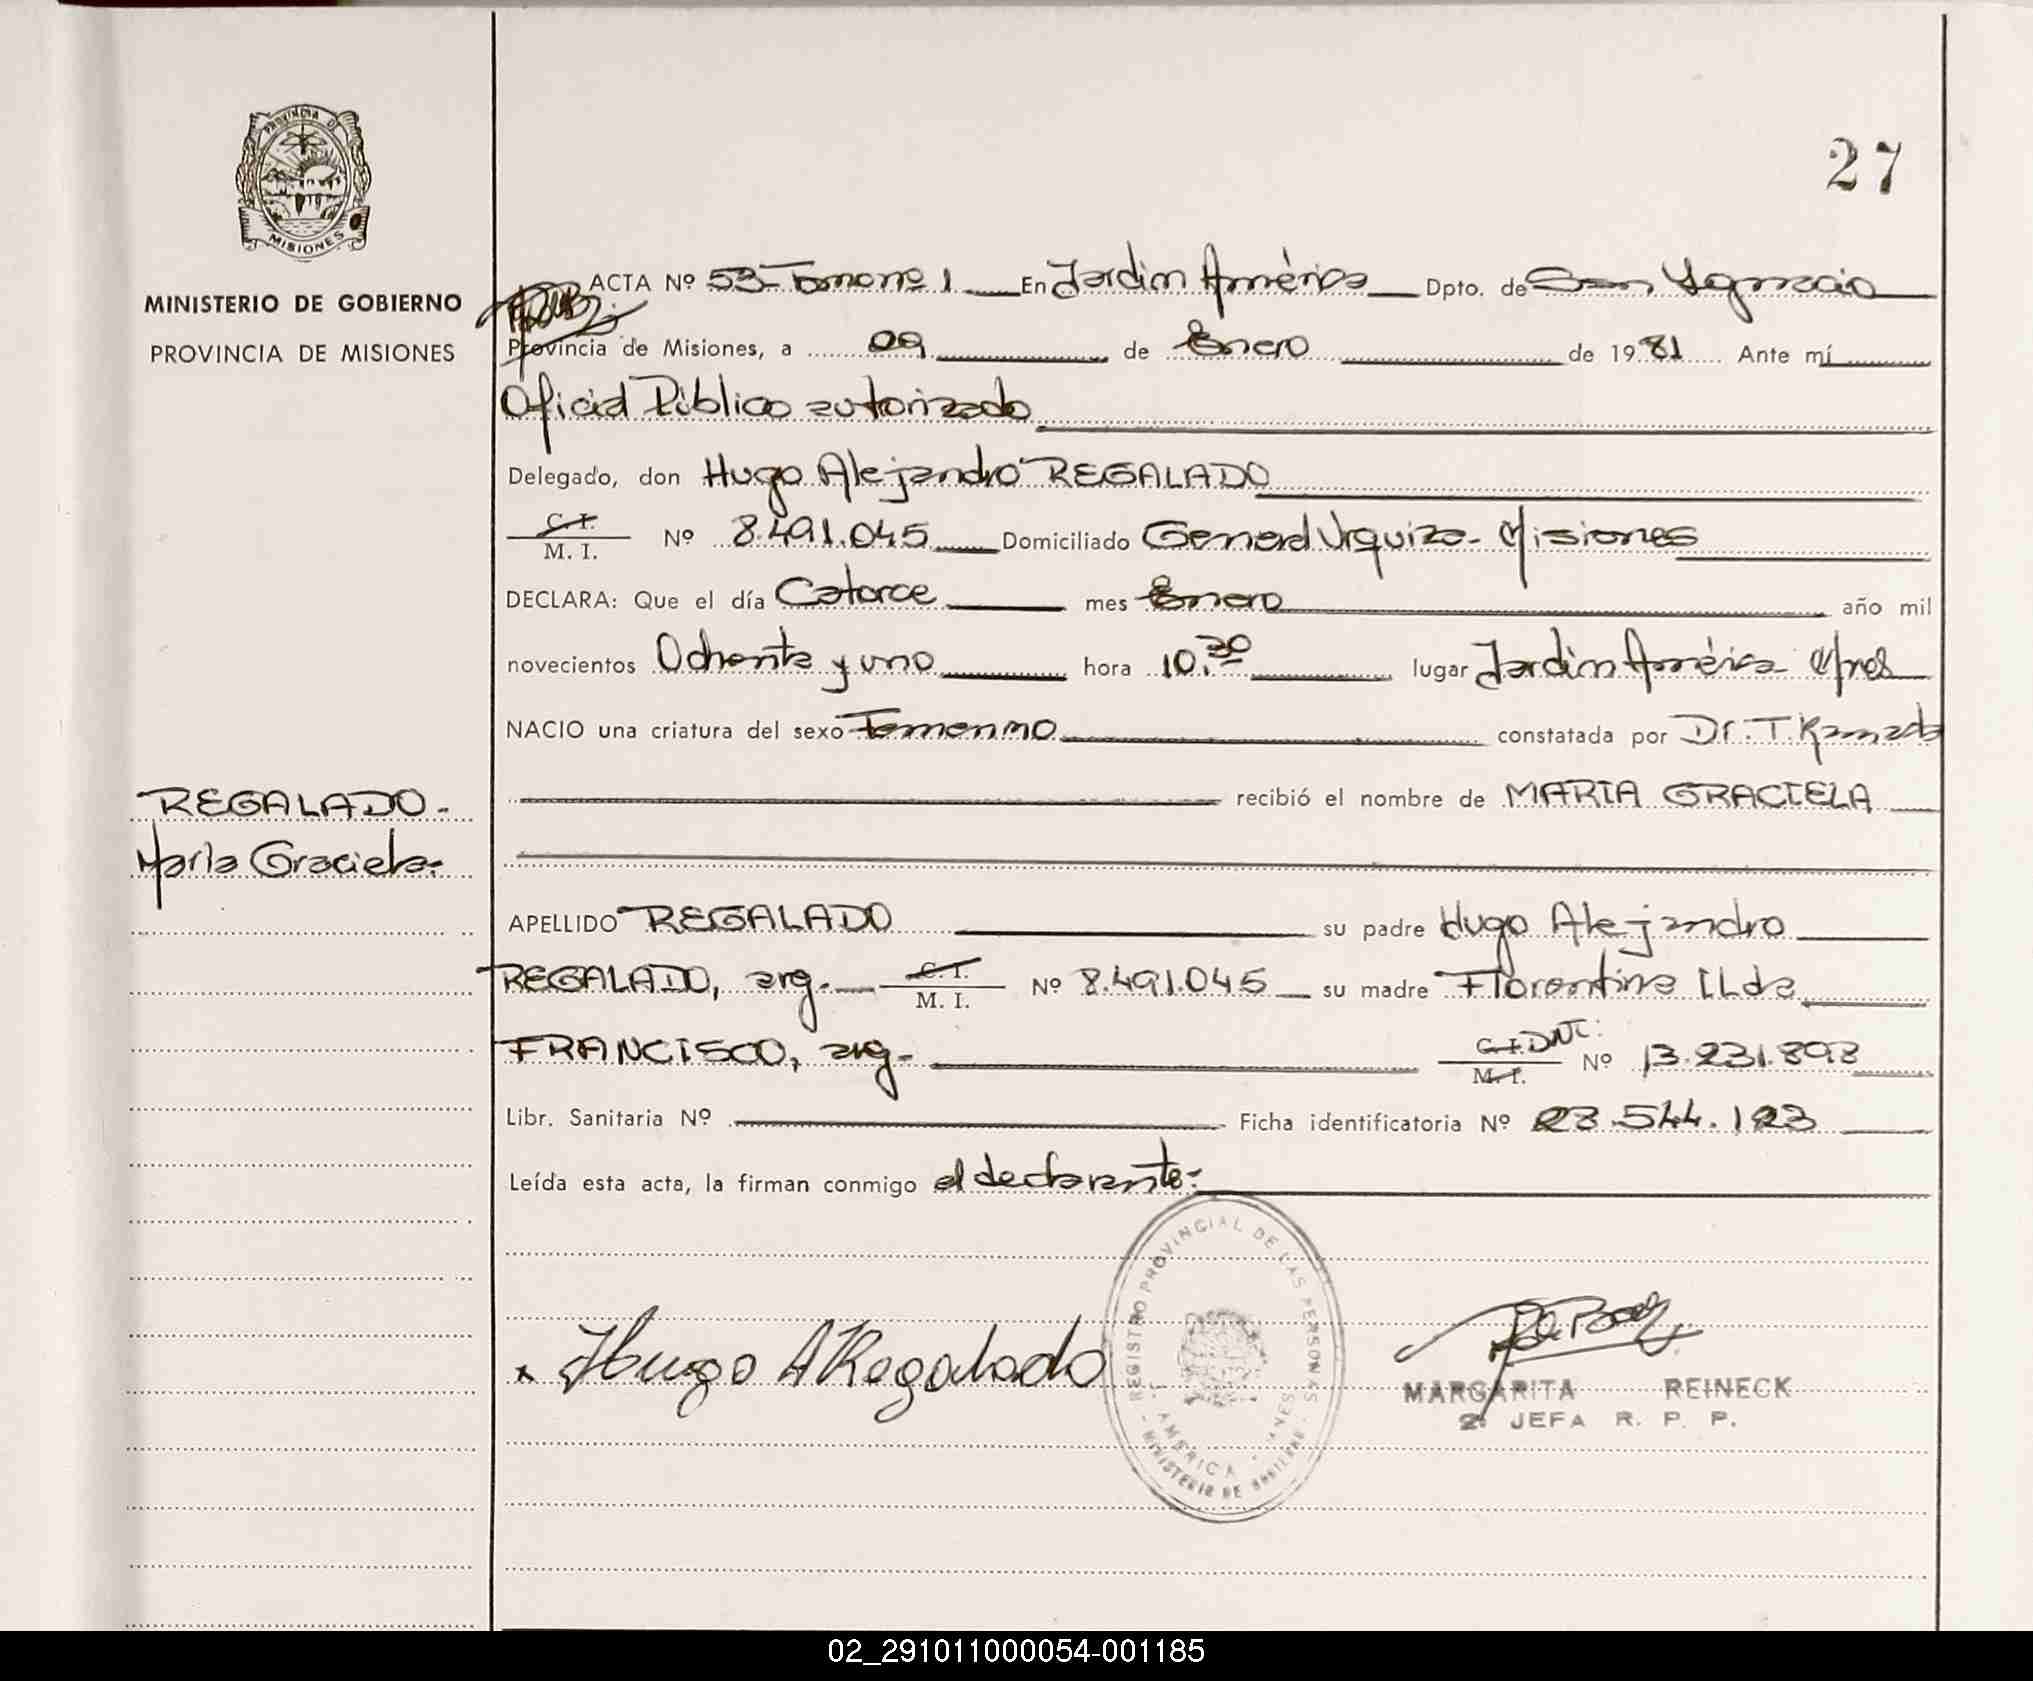 PROVINCIA DE
MISIONES
MINISTERIO DE GOBIERNO
PROVINCIA DE MISIONES
27
ACTA Nº 53 Tomo nº 1 En Jardín América Dpto. de San Ignacio
Provincia de Misiones, a 09 de Enero de 1981 Ante mí
Oficial Público autorizado
Delegado, don Hugo Alejandro REGALADO
C. I.
M. I. Nº 8.491.045 Domiciliado General Urquiza - Misiones
DECLARA: Que el día Catorce mes Enero año mil
novecientos Ochenta y uno hora 10.30 lugar Jardín América Mnes
NACIO una criatura del sexo Femenino constatada por Dr. T. Kamada
recibió el nombre de MARIA GRACIELA
REGALADO.-
María Graciela.-
APELLIDO REGALADO su padre Hugo Alejandro
REGALADO, arg.- C. I.
M. I. Nº 8.491.045 su madre Florentina ILda
FRANCISCO, arg.- C. I. DNI:
M. I. Nº 13.231.893
Libr. Sanitaria Nº Ficha identificatoria Nº 28.544.123
Leída esta acta, la firman conmigo el declarante:-
Hugo A Regalado
REGISTRO PROVINCIAL DE LAS PERSONAS
AMERICA
MINISTERIO DE GOBIERNO
MARGARITA REINECK
2º JEFA R. P. P.
02_291011000054-001185